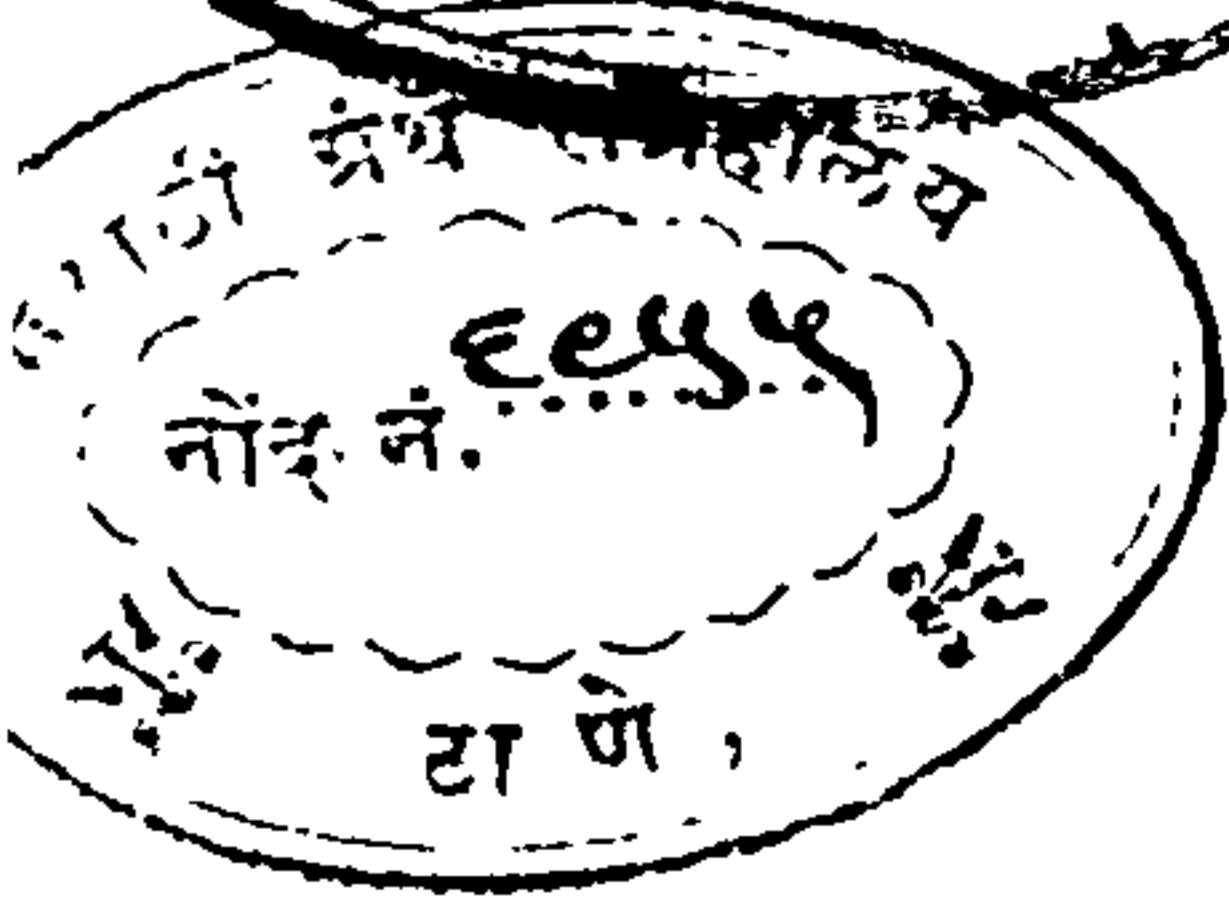 ग्रंथ संग्रहालय
नोंद नं. ६९५५
ठाणे,